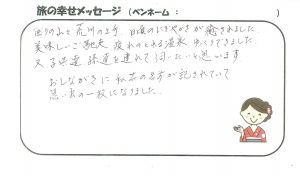 旅の幸せメッセージ（ペンネーム：　　　）
周りの山と荒川のせせ 日頃のにぎやかさが癒されました
美味しいご馳走 疲れのとれる温泉 ゆっくりできました
又 子供達 孫達を連れて 伺いたいと思います
おしながきに 私共の名前が記されていて
思い出の一枚になりました。